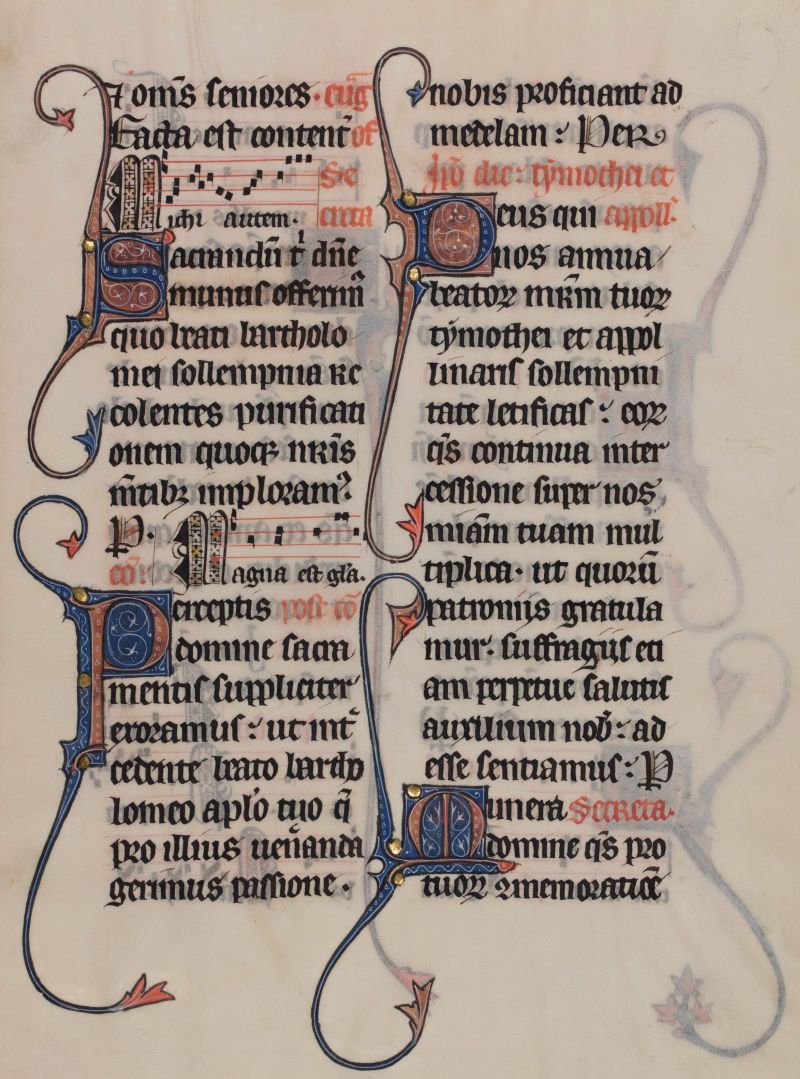 ⁊ om̄s seniores· eūg
Facta est content̄ of
Se
Michi autem· creta
Sacrandū t' dn̄e
munus offerim̄
quo beati bartholo
mei sollempnia re
colentes purificati
onem quoqꝫ nr̄is
m̄tibꝫ imploram᷒·
P·
cō: Magna est gl̄a·
Perceptis post cō
domine sacra
mentis suppliciter
exoramus: ut int̄
cedente beato bartho
lomeo aplo tuo q̄
pro illius uen̄anda
gerimus passione·
nobis proficiant ad
medelam: Per
tymothei et
Deus qui appoll'
nos annua
beatoꝝ mr̄m tuoꝝ
tymothei et appol
linaris sollempni
tate letificas: eoꝝ
q̄s continua inter
cessione super nos
miām tuam mul
tiplica· ut quorū
patroniis gratula
mur· suffragiis eti
am perpetue salutis
auxilium nob̄: ad
esse sentiamus: P
Munera Secreta·
domine q̄s pro
tuoꝝ ꝯmemoratiōe